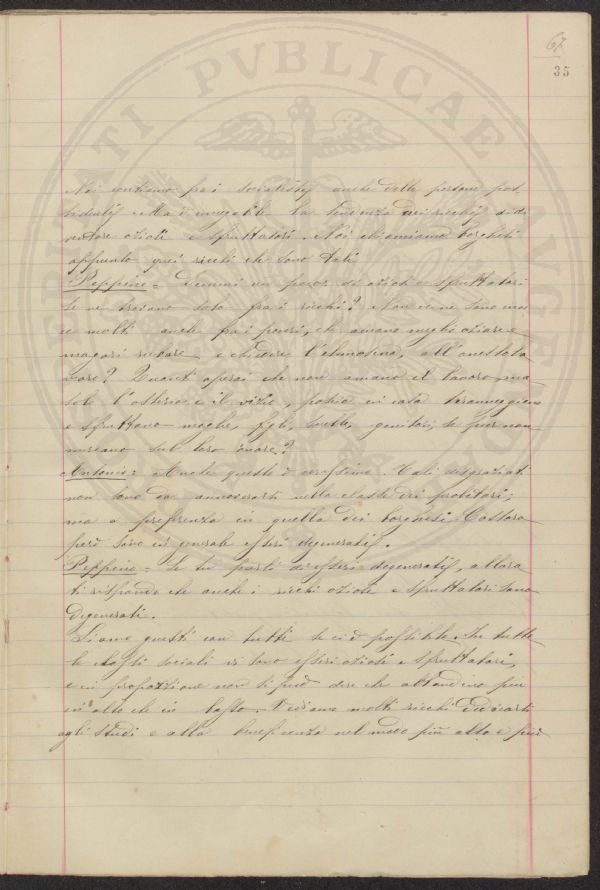 67
35
PRIVATI PVBLICAE
Noi contiamo fra i socialisti anche delle persone pos-
sidenti. Ma è innegabile la tendenza dei ricchi a di-
ventare oziosi e sfruttatori. Noi chiamiamo borghesi
appunto quei ricchi che sono tali
Peppino = Dimmi un poco: di oziosi e sfruttatori
se ne trovano solo fra i ricchi? Non ve ne sono ma-
e molti anche fra i poveri, che amano meglio oziare e
magari rubare e chiedere l'elemosina, all'onesto la
voro? Quanti operai che non amano il lavoro, ma
solo l'osteria e il vizio, poscia in casa tiranneggiano
e sfruttano moglie, figli, sorelle, genitori, se pur non
mercano sul loro onore?
Antonio = Anche questo è verissimo. Tali disgraziati
non sono da annoverarsi nella classe dei proletari;
ma a preferenza in quella dei borghesi. Costoro
però sono in generale esseri degenerati.
Peppino = Se tu parli di esseri degenerati, allora
ti rispondo che anche i ricchi oziosi e sfruttatori sono
degenerati.
Siamo giusti con tutti se ciò è possibile. In tutte
le classi sociali vi sono esseri oziosi e sfruttatori,
e in proporzione non si può dire che abbondino più
in alto che in basso. Vediamo molti ricchi dedicarsi
agli studi e alla beneficenza nel modo più alto e più